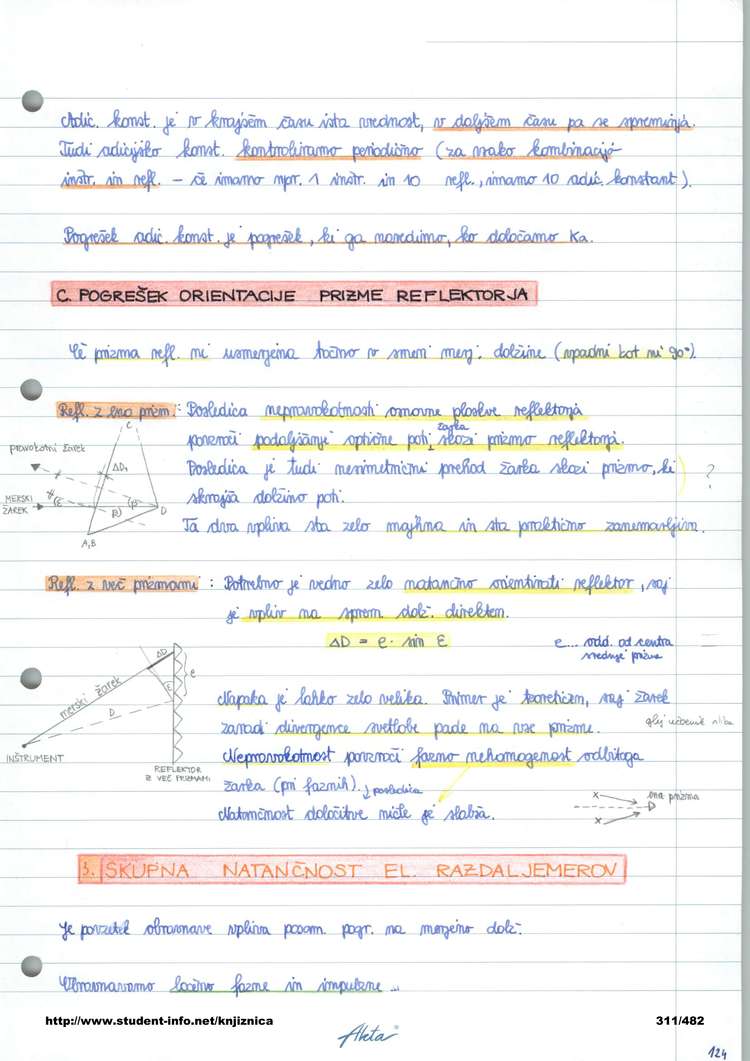 Adic. konst. je v krajšem času ista vrednost, v daljšem času pa se spreminja.
Tudi adicijsko konst. kontroliramo periodično (za vsako kombinacijo
instr. in refl. – če imamo npr. 1 instr. in 10 refl., imamo 10 adic. konstant).
Pogrešek adic. konst. je pogrešek, ki ga naredimo, ko določamo Ka.
C. POGREŠEK ORIENTACIJE PRIZME REFLEKTORJA
Če prizma refl. ni usmerjena točno v smeri merj. dolžine (vpadni kot ni 90°)
Refl. z eno prizm.: Posledica nepravokotnosti osnovne ploskve reflektorja
povzroči podaljšanje optične poti žarka skozi prizmo reflektorja.
Posledica je tudi nesimetrični prehod žarka skozi prizmo, ki ?
skrajša dolžino poti.
Ta dva vpliva sta zelo majhna in sta praktično zanemarljiva.
C
pravokotni žarek
ΔD₁
MERSKI
ŽAREK
D
A,B
Refl. z več prizmami: Potrebno je vedno zelo natančno orientirati reflektor, saj
je vpliv na sprem. dolž. direkten.
ΔD = e · sin ε
e... odd. od centra
srednje prizme
ΔD
merski žarek
e
ε
D
INŠTRUMENT
REFLEKTOR
Z VEČ PRIZMAMI
Napaka je lahko zelo velika. Primer je teoretičen, saj žarek
zaradi divergence svetlobe pade na vse prizme.
glej učbenik slika
Nepravokotnost povzroči fazno nehomogenost odbitega
žarka (pri faznih). ↓ posledica
Natančnost določitve ničle je slabša.
x
ena prizma
x
3. SKUPNA NATANČNOST EL. RAZDALJEMEROV
Je povzetek obravnave vpliva posam. pogr. na merjeno dolž.
Obravnavamo ločeno fazne in impulzne ...
http://www.student-info.net/knjiznica
311/482
Aleta
124